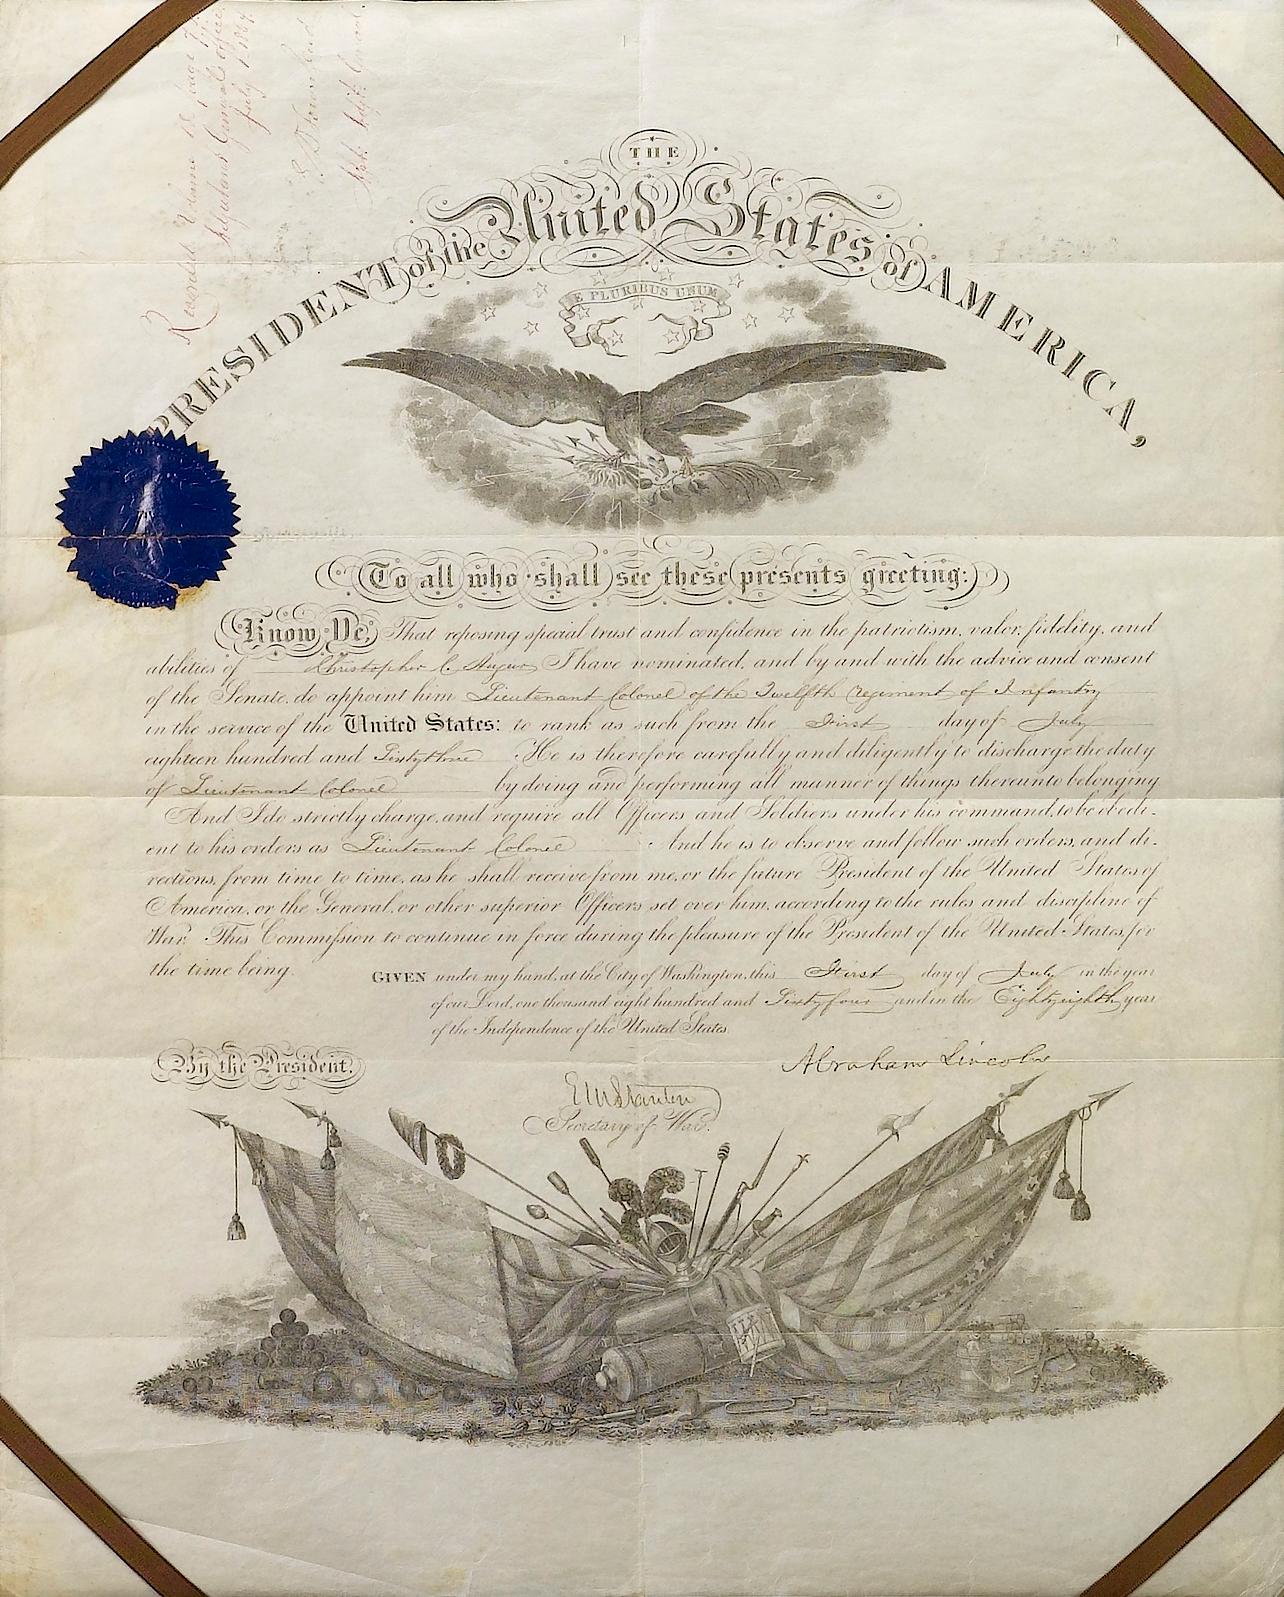 THE
PRESIDENT of the United States of AMERICA,
E PLURIBUS UNUM
To all who shall see these presents greeting:
Know Ye, That reposing special trust and confidence in the patriotism, valor, fidelity, and
abilities of Christopher C. Augur I have nominated, and by and with the advice and consent
of the Senate, do appoint him Lieutenant Colonel of the Twelfth regiment of Infantry
in the service of the United States: to rank as such from the First day of July
eighteen hundred and Sixty three He is therefore carefully and diligently to discharge the duty
of Lieutenant Colonel by doing and performing all manner of things thereunto belonging
And I do strictly charge, and require all Officers and Soldiers under his command, to be obedi-
ent to his orders as Lieutenant Colonel And he is to observe and follow such orders, and di-
rections, from time to time, as he shall receive from me, or the future President of the United States of
America, or the General, or other superior Officers set over him, according to the rules and discipline of
War. This Commission to continue in force during the pleasure of the President of the United States, for
the time being.
GIVEN under my hand, at the City of Washington, this First day of July in the year
of our Lord, one thousand eight hundred and Sixty four and in the Eighty eighth year
of the Independence of the United States.
By the President,
Abraham Lincoln
Edwin M Stanton
Secretary of War.
Volume
Adjutant General's Office
July 1 1864
E D Townsend
Asst. Adjt. General